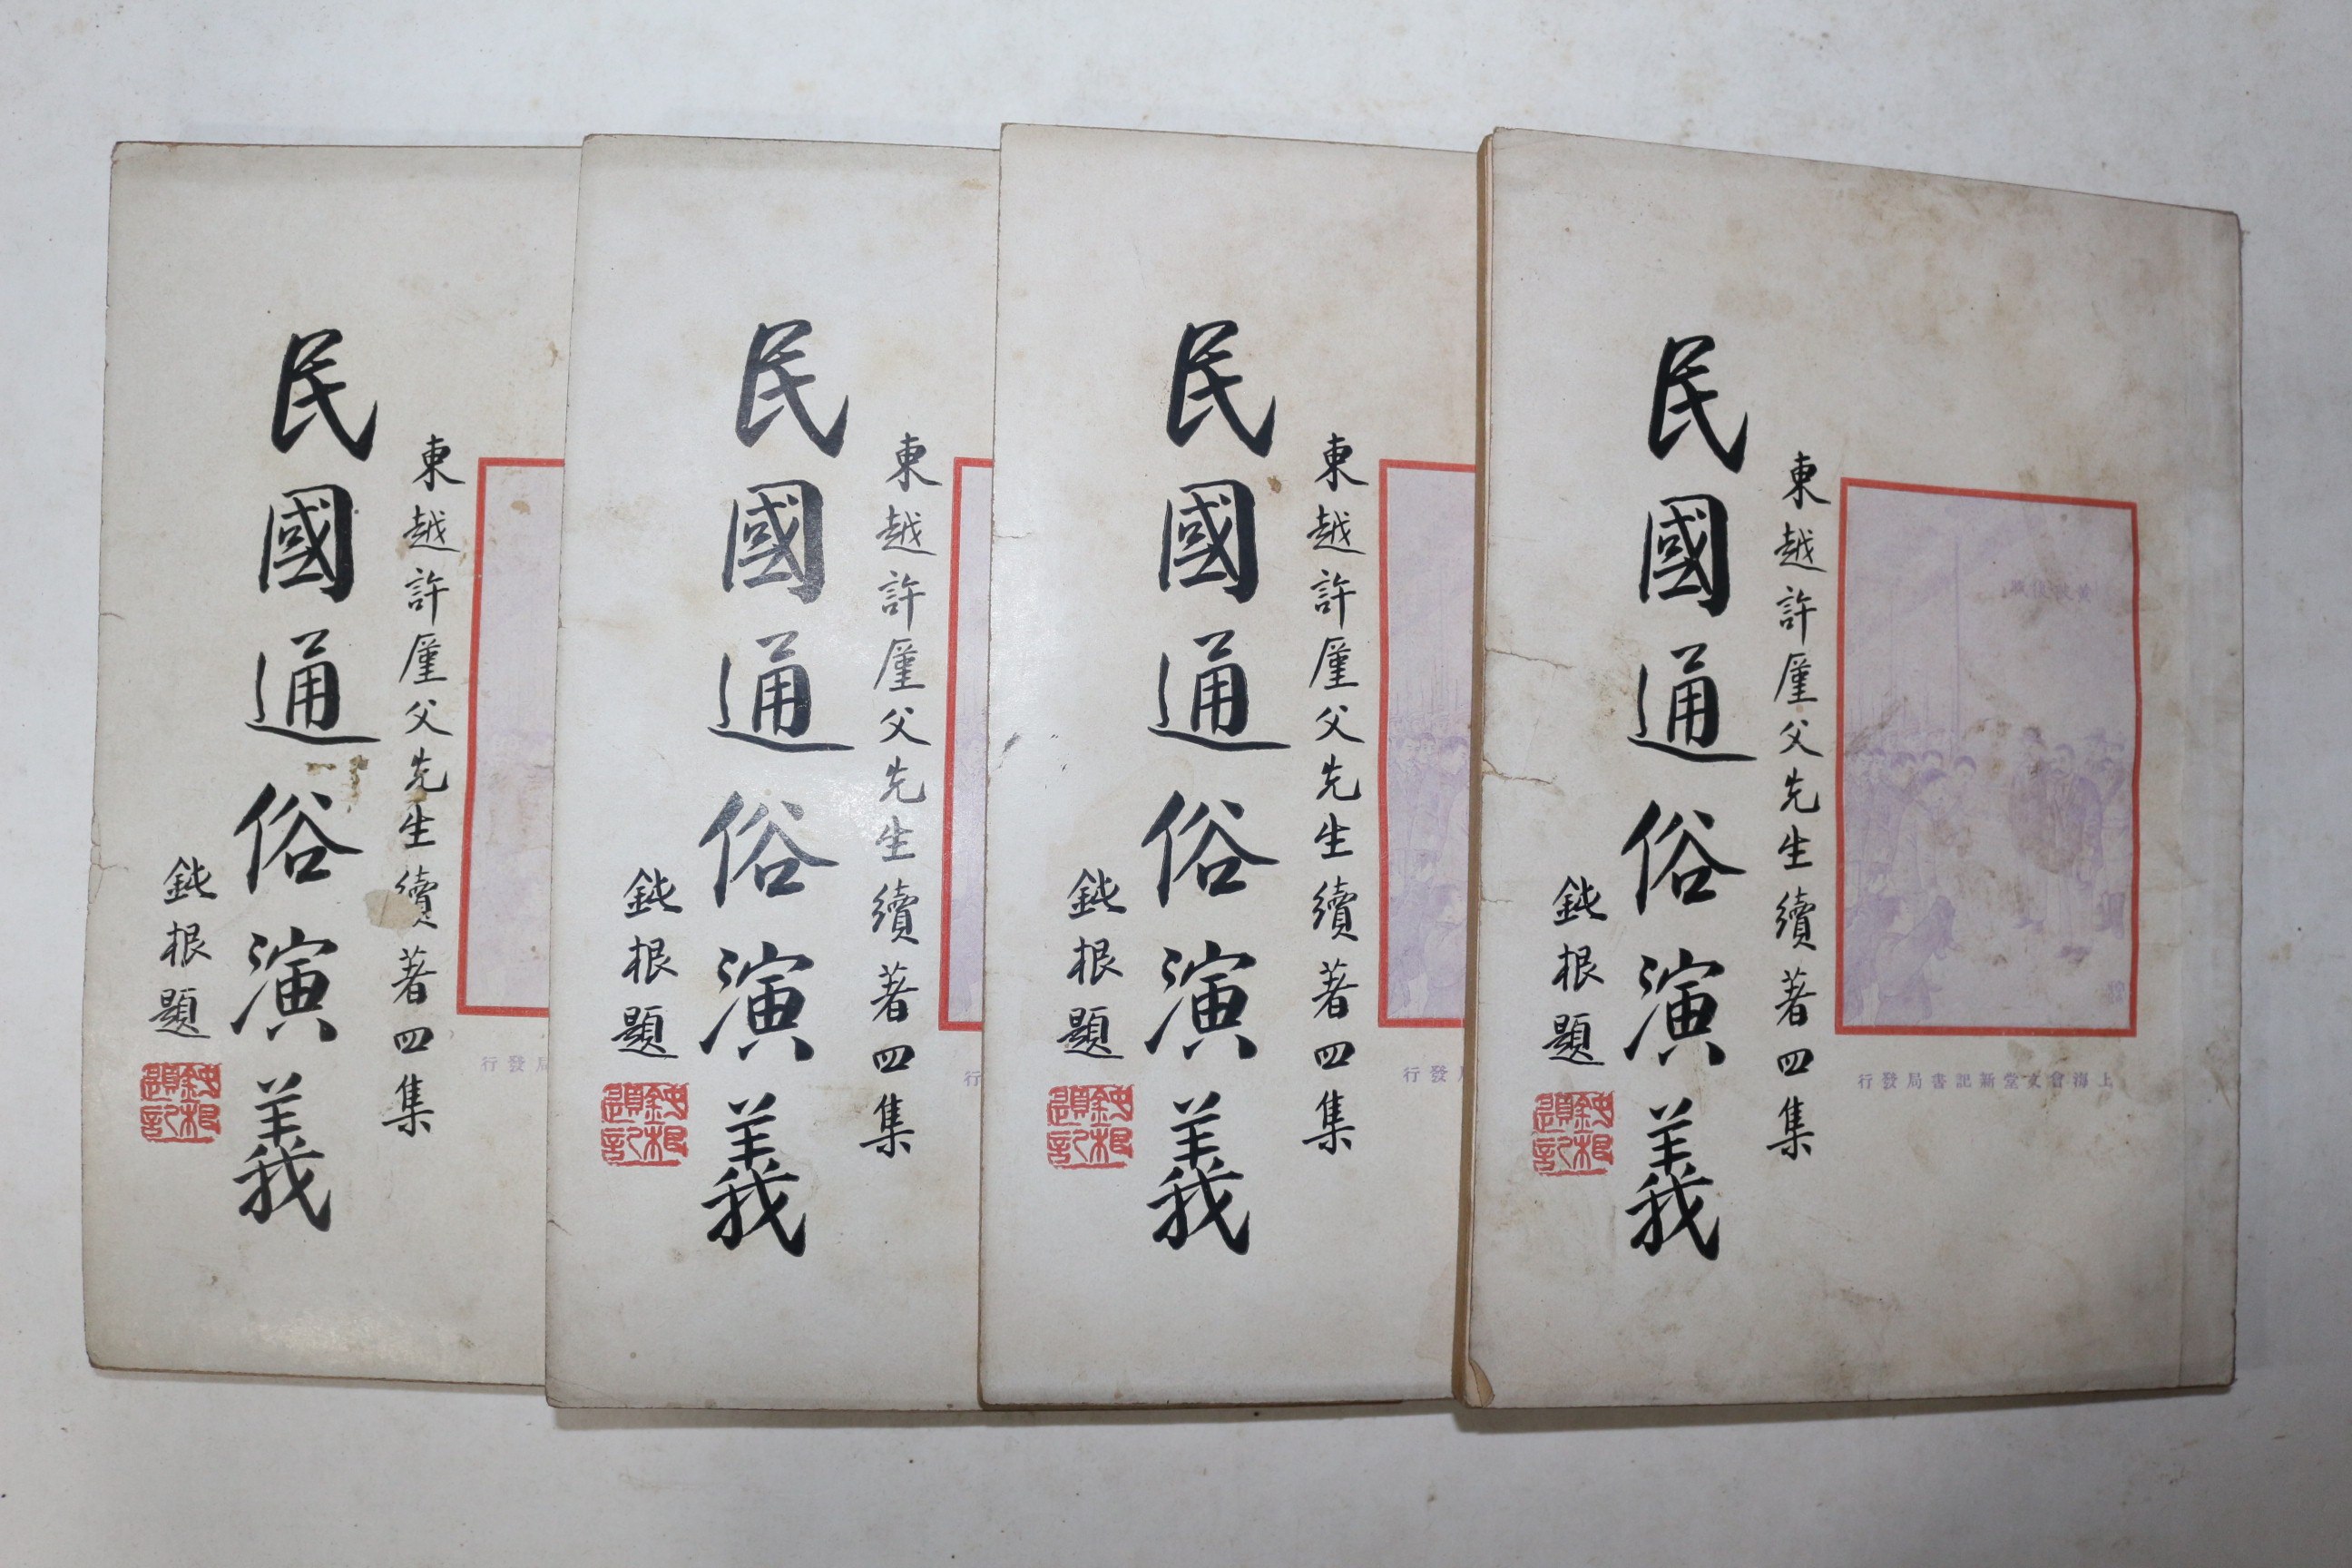 東越許厪父先生續著四集
民國通俗演義
鈍根題
鈍根題記
上海會文堂新記書局發行
東越許厪父先生續著四集
民國通俗演義
鈍根題
鈍根題記
發行
東越許厪父先生續著四集
民國通俗演義
鈍根題
鈍根題記
行
東越許厪父先生續著四集
民國通俗演義
鈍根題
鈍根題記
發行